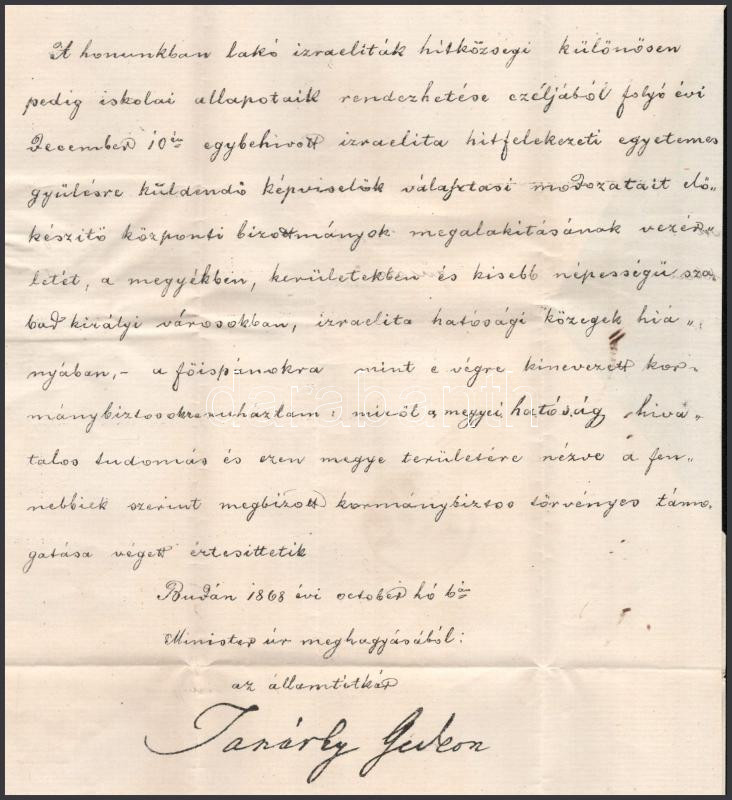 A honunkban lakó izraeliták hitközségi különösen
pedig iskolai allapotaik rendezhetése czéljából folyó évi
December 10én egybehivott izraelita hitfelekezeti egyetemes
gyülésre küldendő képviselők választasi modozatait elő„
készitő központi bizottmányok megalakitásának vezér„
letét, a megyékben, kerületekben és kisebb népességü sza
bad királyi városokban, izraelita hatósági közegek hiá„
nyában,- a főispánokra mint e végre kinevezett kor„
mánybiztosokra ruháztam: miről a megyei hatóság hiva„
talos tudomás és ezen megye területére nézve a fen„
nebbiek szerint megbizott kormánybiztos törvényes támo„
gatása végett értesittetik
Budán 1868 évi october hó 6án
Minister úr meghagyásából:
az államtitkár
Tanárky Gedeon
darabanth